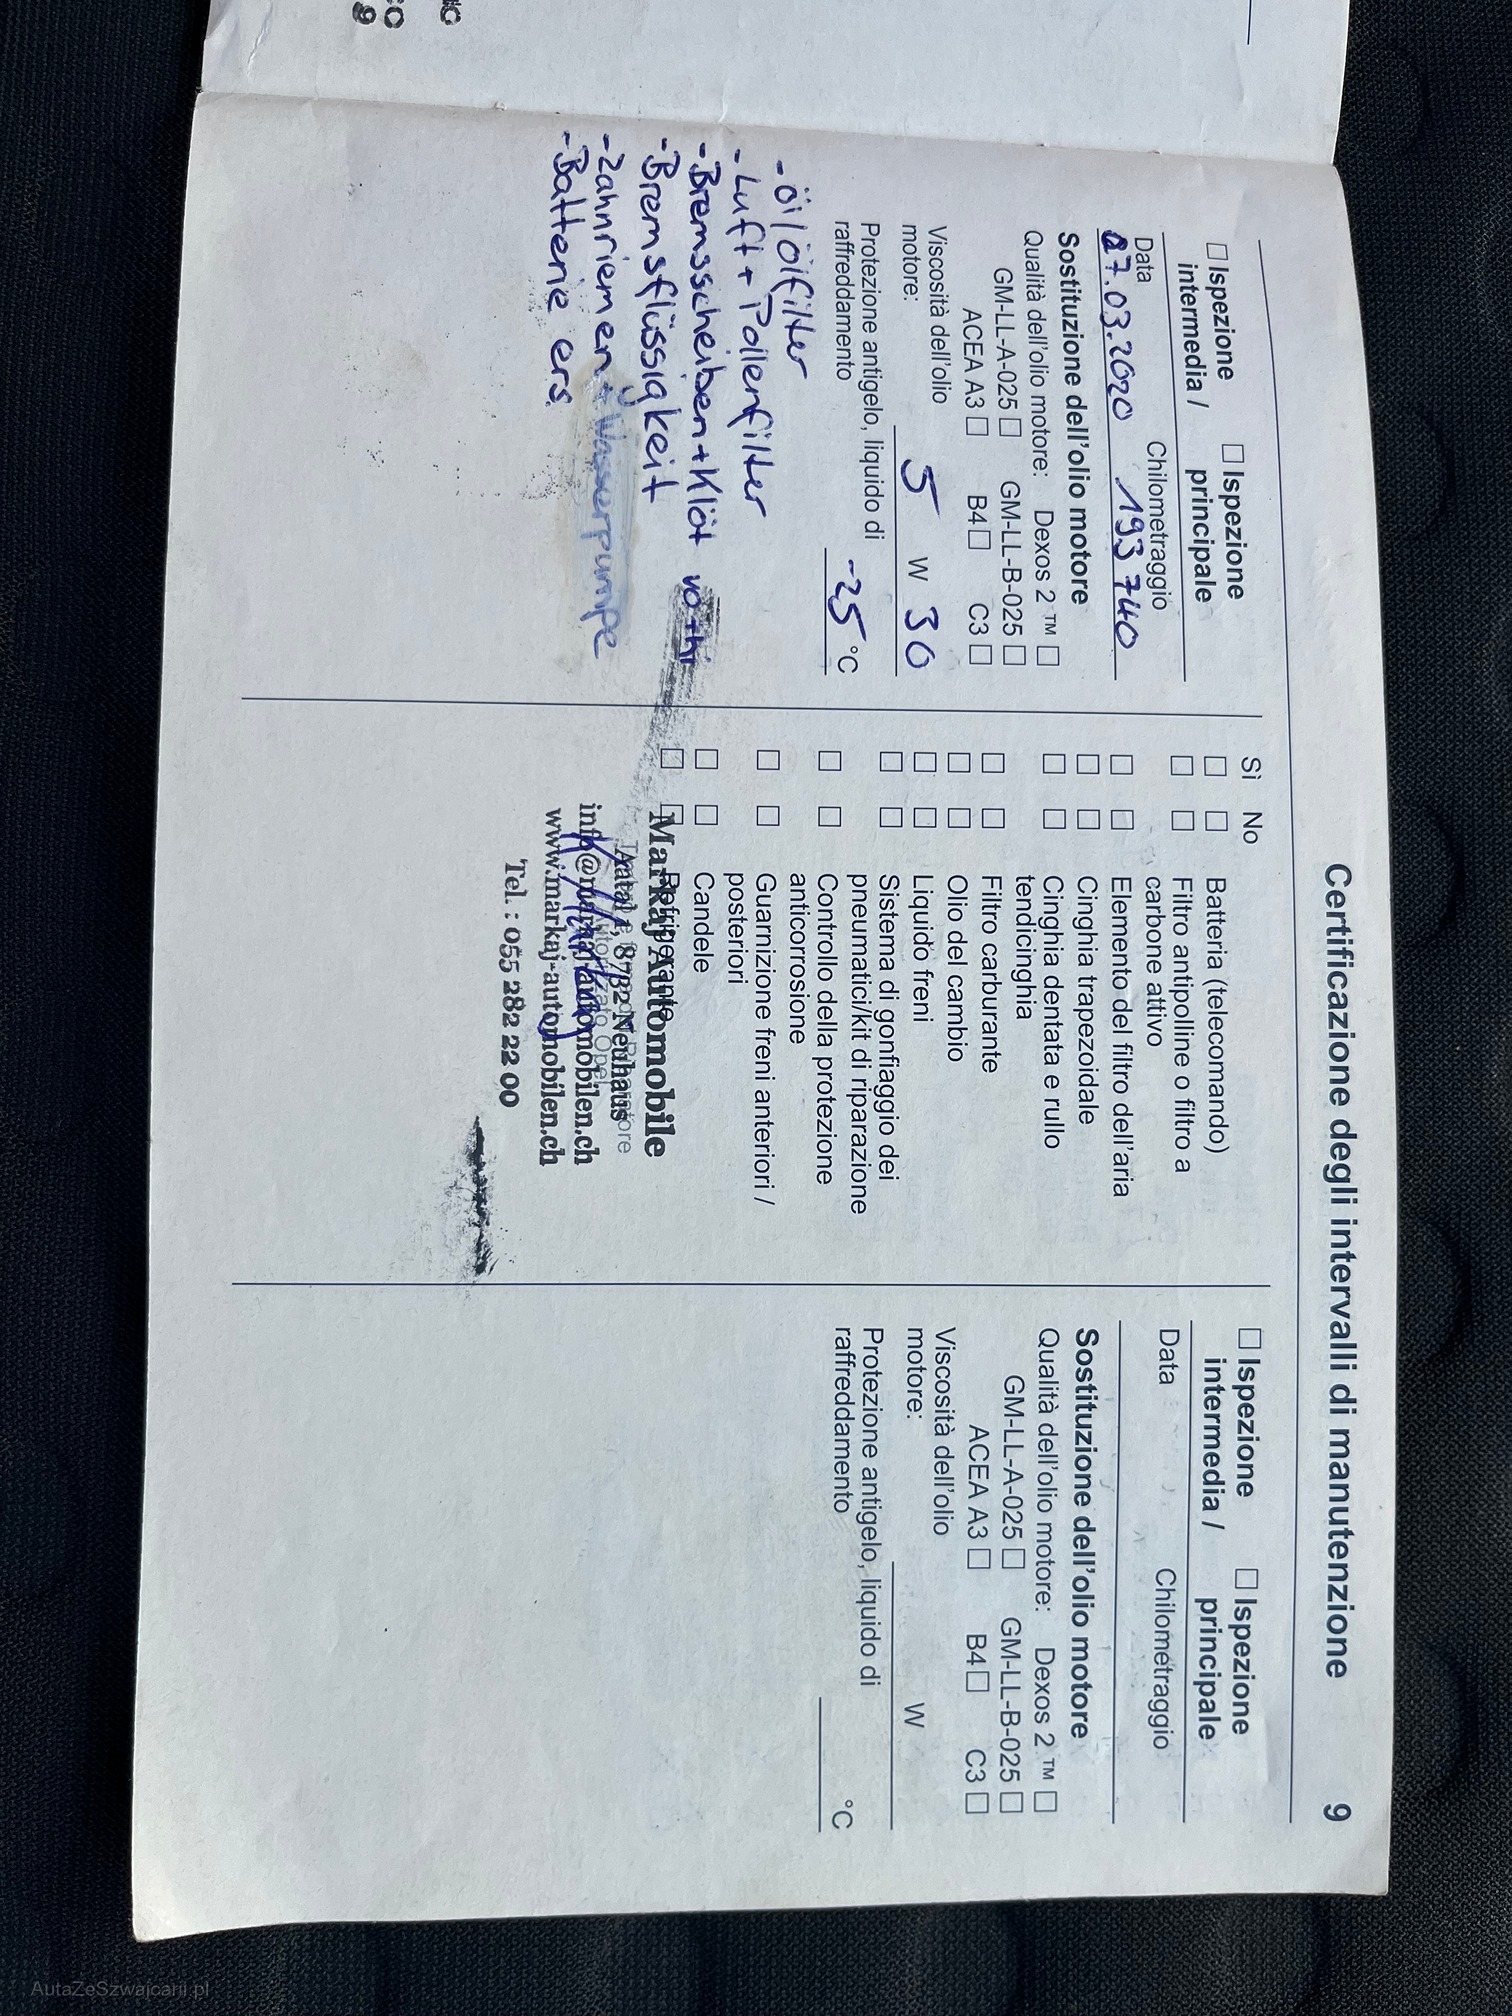 Certificazione degli intervalli di manutenzione 9
☐ Ispezione intermedia /
☐ Ispezione principale
Data
Chilometraggio
07.03.2020 193 740
Sostituzione dell'olio motore
Qualità dell'olio motore: Dexos 2 ™ ☐
GM-LL-A-025 ☐ GM-LL-B-025 ☐
ACEA A3 ☐ B4 ☐ C3 ☐
Viscosità dell'olio
motore: 5 W 30
Protezione antigelo, liquido di
raffreddamento -25 °C
- Öl Ölfilter
- Luft + Pollenfilter
- Bremsscheiben + Klöt vo + hi
- Bremsflüssigkeit
- Zahnriemen + Wasserpumpe
- Batterie ers.
Sì No
☐ ☐ Batteria (telecomando)
☐ ☐ Filtro antipolline o filtro a
carbone attivo
☐ ☐ Elemento del filtro dell'aria
☐ ☐ Cinghia trapezoidale
☐ ☐ Cinghia dentata e rullo
tendicinghia
☐ ☐ Filtro carburante
☐ ☐ Olio del cambio
☐ ☐ Liquido freni
☐ ☐ Sistema di gonfiaggio dei
pneumatici/kit di riparazione
☐ ☐ Controllo della protezione
anticorrosione
☐ ☐ Guarnizione freni anteriori /
posteriori
☐ ☐ Candele
☐ ☐ Refrigerante
Markaj Automobile
8732 Neuhaus
info@markaj-automobilen.ch
www.markaj-automobilen.ch
Tel. : 055 282 22 00
☐ Ispezione intermedia /
☐ Ispezione principale
Data
Chilometraggio
Sostituzione dell'olio motore
Qualità dell'olio motore: Dexos 2 ™ ☐
GM-LL-A-025 ☐ GM-LL-B-025 ☐
ACEA A3 ☐ B4 ☐ C3 ☐
Viscosità dell'olio
motore: W
Protezione antigelo, liquido di
raffreddamento °C
AutaZeSzwajcarii.pl